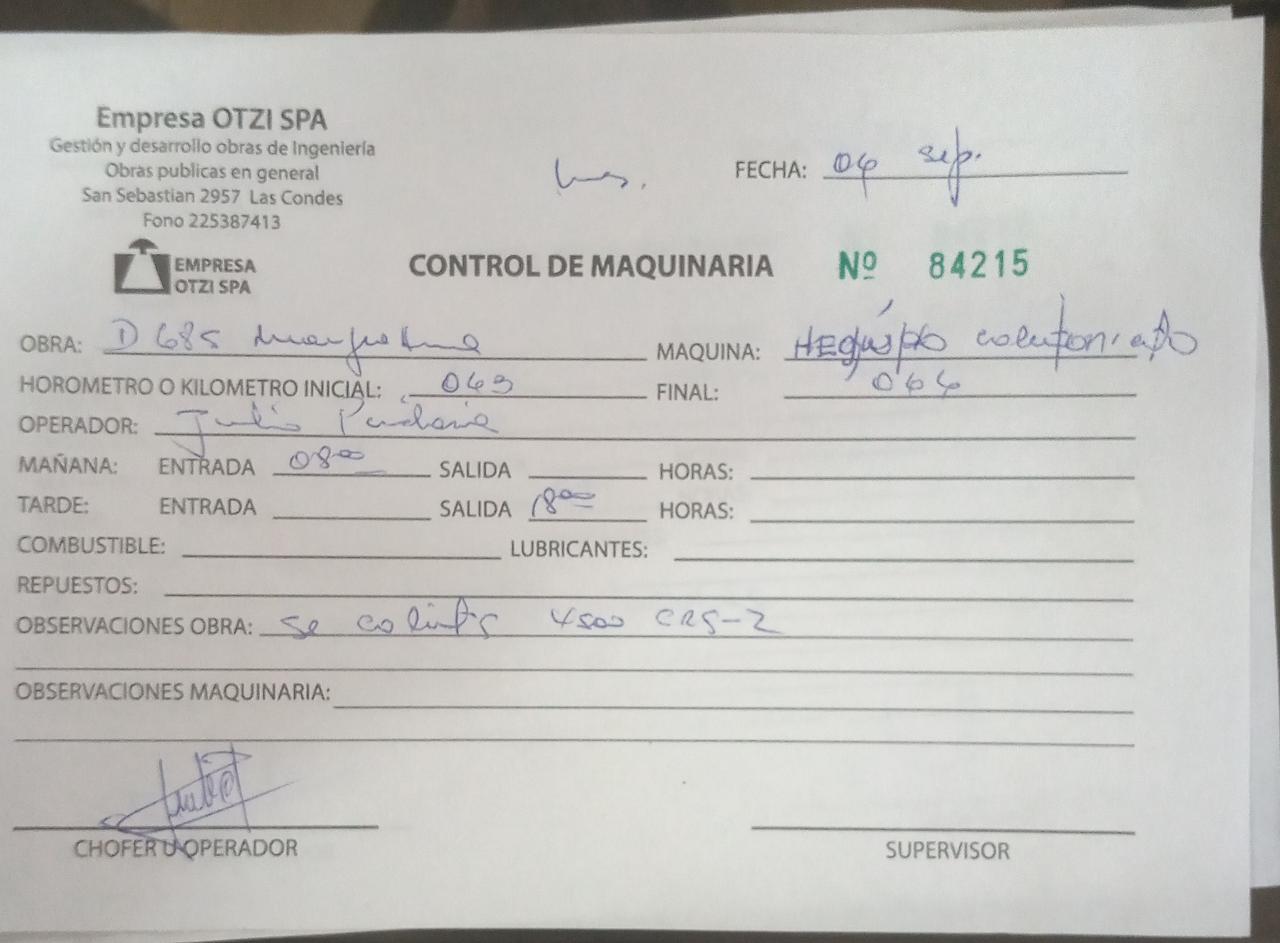 Empresa OTZI SPA
Gestión y desarrollo obras de Ingeniería
Obras publicas en general
San Sebastian 2957 Las Condes
Fono 225387413
FECHA: 04 sep.
EMPRESA
OTZI SPA
CONTROL DE MAQUINARIA Nº 84215
OBRA: D 685
MAQUINA:
HOROMETRO O KILOMETRO INICIAL: 063 FINAL: 064
OPERADOR: Julio
MAÑANA: ENTRADA 08⁰⁰ SALIDA HORAS:
TARDE: ENTRADA SALIDA 18⁰⁰ HORAS:
COMBUSTIBLE: LUBRICANTES:
REPUESTOS:
OBSERVACIONES OBRA: se 4500 CRS-2
OBSERVACIONES MAQUINARIA:
CHOFER U OPERADOR SUPERVISOR